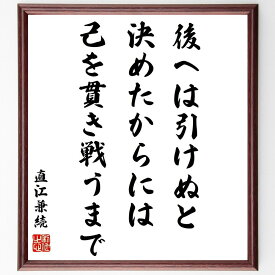 後へは引けぬと
決めたからには
己を貫き戦うまで
直江兼続